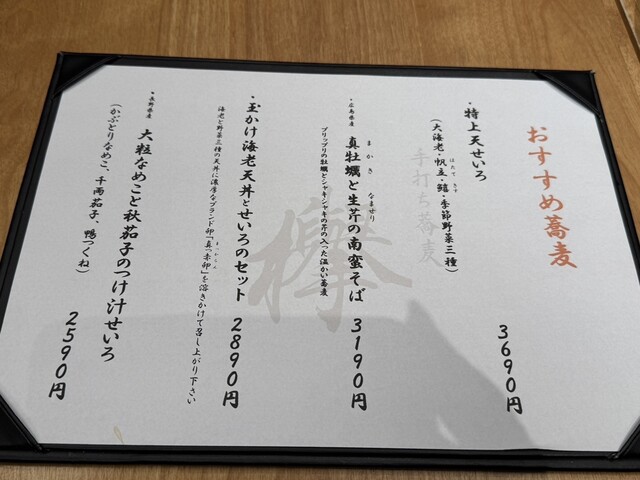 おすすめ蕎麦
・特上天せいろ
(大海老・帆立・鱚・季節野菜三種)
ほたて きす
3690円
手打ち蕎麦
欅
・広島県産
真牡蠣と生芹の南蛮そば
まかき なませり
プリップリの牡蠣とシャキシャキの芹の入った温かい蕎麦
3190円
・玉かけ海老天丼とせいろのセット
海老と野菜三種の天丼に濃厚なブランド卵「真っ赤卵」を溶きかけて召し上がり下さい
2890円
・長野県産
大粒なめこと秋茄子のつけ汁せいろ
(かぶとりなめこ、千両茄子、鴨つくね)
2590円